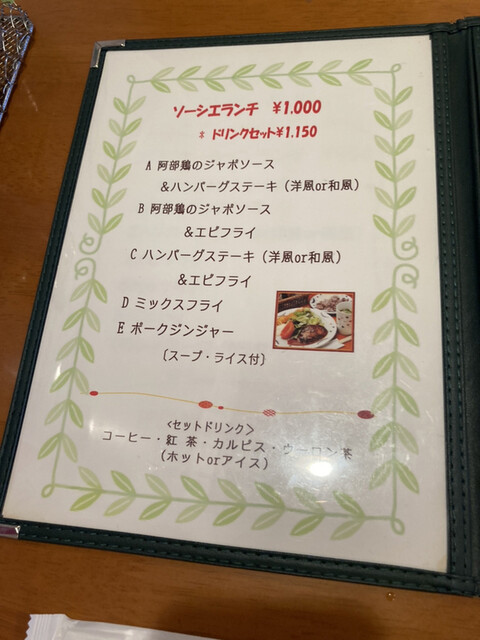 ソーシエランチ ¥1.000
* ドリンクセット¥1.150
A 阿部鶏のジャポソース
&ハンバーグステーキ (洋風or和風)
B 阿部鶏のジャポソース
&エビフライ
C ハンバーグステーキ (洋風or和風)
&エビフライ
D ミックスフライ
E ポークジンジャー
(スープ・ライス付)
<セットドリンク>
コーヒー・紅 茶・カルピス・ウーロン茶
(ホットorアイス)